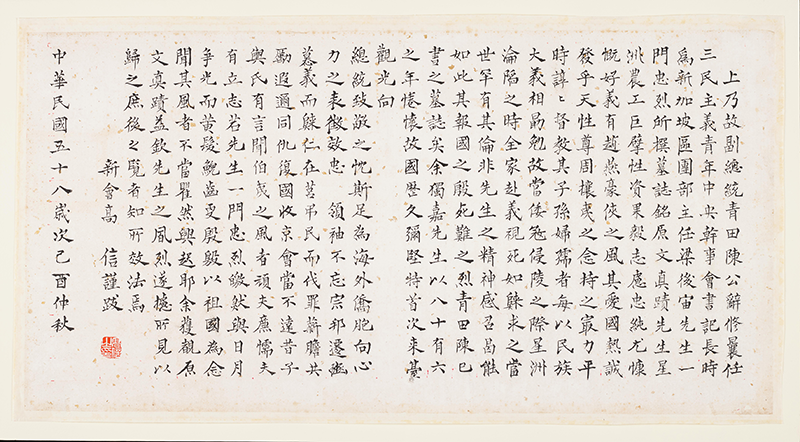 上乃故副總統青田陳公辭修曩任
三民主義青年中央幹事會書記長時
為新加坡區團部主任梁後宙先生一
門忠烈所撰墓誌銘原文真蹟先生星
洲農工巨擘性資果毅志慮忠純尤慷
慨好義有趙燕豪俠之風其愛國熱誠
發乎天性尊周攘夷之念持之最力平
時諄諄督教其子孫婦孺者每以民族
大義相勗勉故當倭寇侵陵之際星洲
淪陷之時全家赴義視死如歸求之當
世罕有其倫非先生之精神感召曷能
如此其報國之殷死難之烈青田陳已
書之墓誌矣余獨嘉先生以八十有六
之年惓懷故國歷久彌堅特首次來臺
觀光向
總統致敬之忱斯足為海外僑胞向心
力之表徵效忠 領袖不忘宗邦遷豳
慕義而歸仁在莒弔民而伐罪薪膽共
勵遐邇同仇復國收京會當不遠昔子
輿氏有言聞伯夷之風者頑夫廉懦夫
有立志若先生一門忠烈皦然與日月
爭光而黃髮鮐齒更殷殷以祖國為念
聞其風者不當瞿然興起耶余獲觀原
文真蹟益欽先生之風烈遂攄所見以
歸之庶後之覽者知所效法焉
新會高 信謹跋
中華民國五十八歲次己酉仲秋